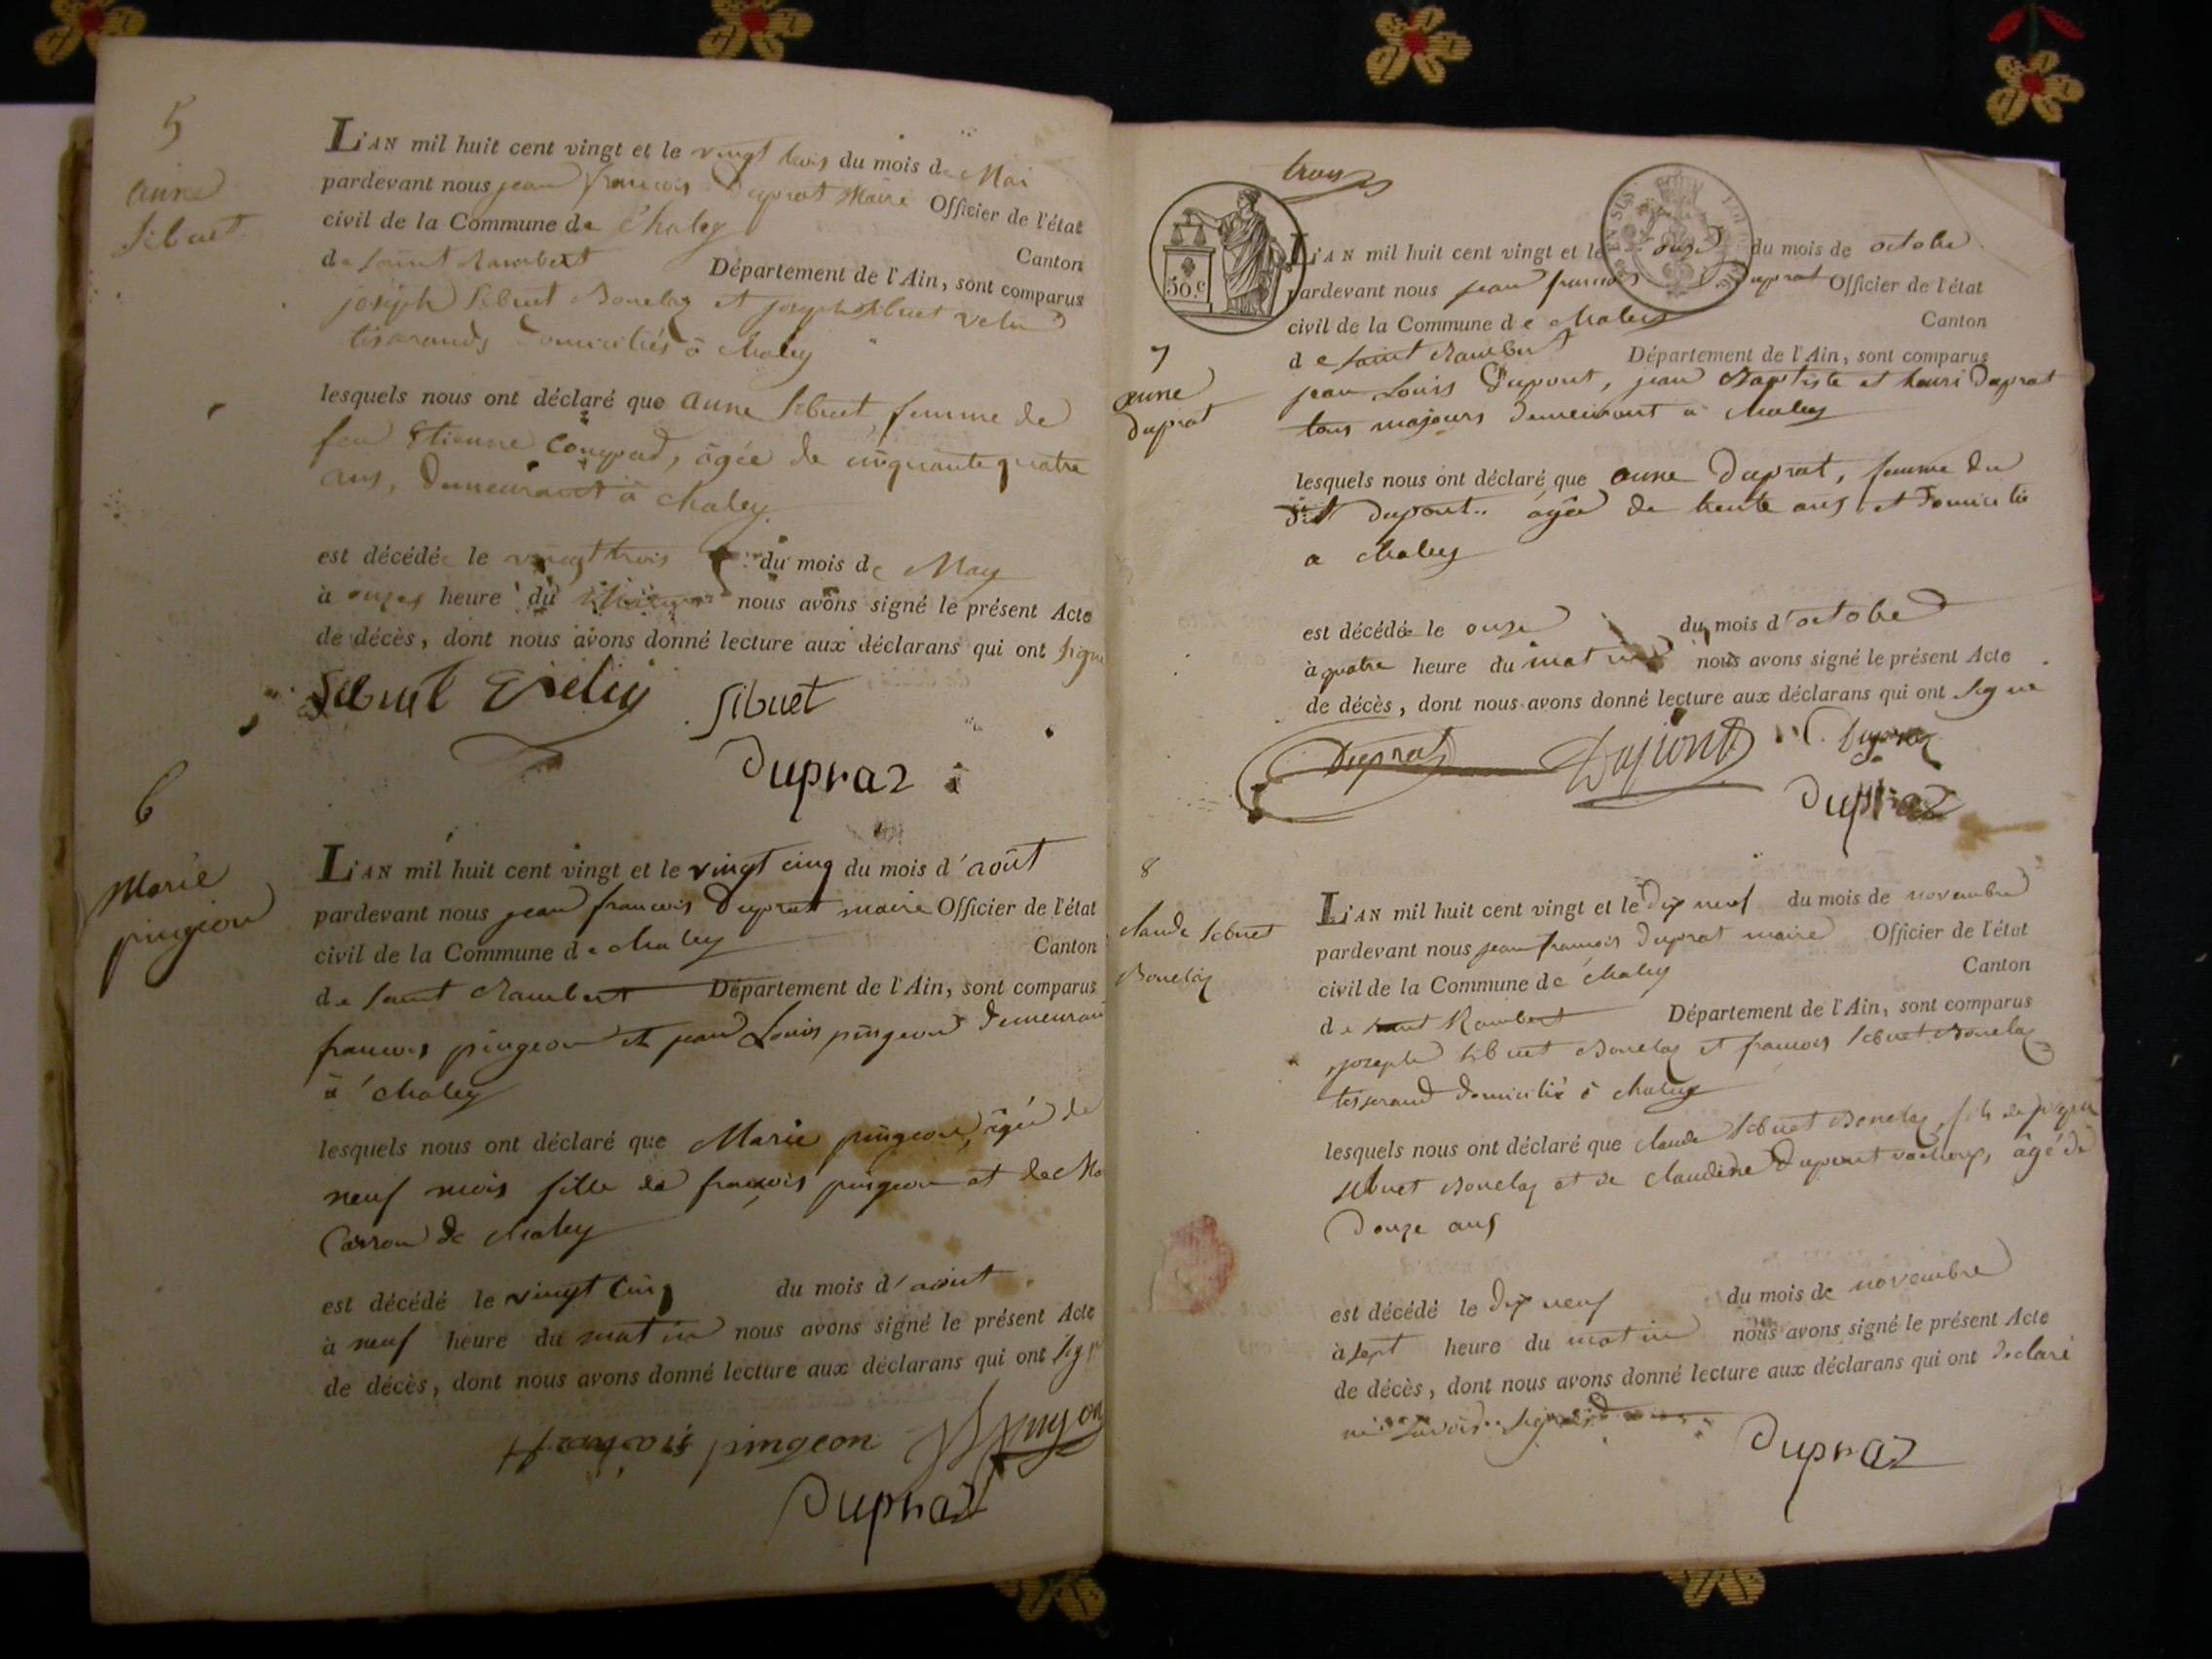 5
anne
Sibuet
L'AN mil huit cent vingt et le vingt trois du mois de Mai
pardevant nous jean francois Duprat Maire Officier de l'état
civil de la Commune de Chaley
Canton
de saint Rambert Département de l'Ain, sont comparus
joseph Sibuet Bonclaz et joseph Sibuet
tisserands domiciliés à chaley
lesquels nous ont déclaré que anne Sibuet, femme de
feu Etienne, âgée de cinquante quatre
ans, demeurant à chaley
est décédée le vingt trois du mois de May
à onzes heure du nous avons signé le présent Acte
de décès, dont nous avons donné lecture aux déclarans qui ont signé
Sibuet
Sibuet
Dupraz
6
Marie
pingeon
L'AN mil huit cent vingt et le vingt cinq du mois d'août
pardevant nous jean francois Duprat maire Officier de l'état
civil de la Commune de chaley
Canton
de saint Rambert Département de l'Ain, sont comparus
francois pingeon et jean Louis pingeon demeurant
à chaley
lesquels nous ont déclaré que Marie pingeon, âgée de
neuf mois fille de francois pingeon et de
Carron de chaley
est décédé le vingt cinq du mois d'aout
à neuf heure du matin nous avons signé le présent Acte
de décès, dont nous avons donné lecture aux déclarans qui ont
francois pingeon
Dupraz
trois
50.c
EN SUS
L'AN mil huit cent vingt et le onze du mois de octobre
pardevant nous jean francois Duprat Officier de l'état
civil de la Commune de chaley
Canton
de saint Rambert Département de l'Ain, sont comparus
7
anne
Duprat
jean Louis Dupont, jean Baptiste et henri Duprat
tous majeurs demeurant à chaley
lesquels nous ont déclaré que anne Duprat, femme du
dit Dupont.. âgée de trente ans et domicilié
a chaley
est décédée le onze du mois d'octobre
à quatre heure du matin nous avons signé le présent Acte
de décès, dont nous avons donné lecture aux déclarans qui ont signé
Duprat Dupont
Dupraz
8
claude Sibuet
Bonclaz
L'AN mil huit cent vingt et le dix neuf du mois de novembre
pardevant nous jean francois Duprat maire Officier de l'état
civil de la Commune de chaley
Canton
de saint Rambert Département de l'Ain, sont comparus
joseph Sibuet Bonclaz et francois Sibuet Bonclaz
tisserand domicilié à chaley
lesquels nous ont déclaré que claude Sibuet Bonclaz, fils de joseph
Sibuet Bonclaz et de claudine Dupont, âgé de
Douze ans
est décédé le dix neuf du mois de novembre
à sept heure du matin nous avons signé le présent Acte
de décès, dont nous avons donné lecture aux déclarans qui ont déclaré
ne savoir signer
Dupraz